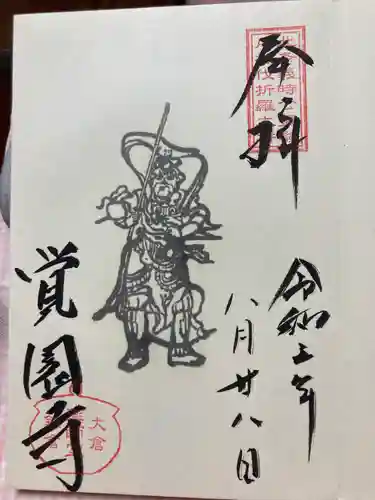 奉拝
伐折羅
令和三年
八月廿八日
覚園寺
大倉